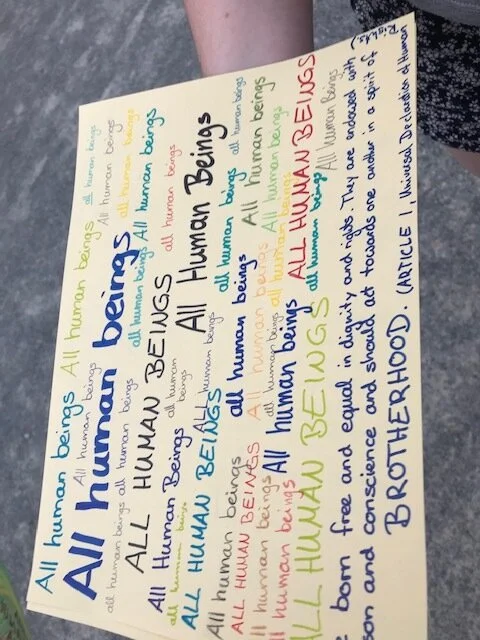 All human beings All human beings all human beings
All human beings All human beings
All human beings all human beings
all human beings all human beings all human beings All human beings
ALL HUMAN BEINGS all human beings
All Human Beings all human beings All Human Beings all human beings
all human beings
ALL HUMAN BEINGS ALL human beings all human beings All human beings
All human beings all human beings All human beings
ALL HUMAN BEINGS All human beings all human beings ALL HUMAN BEINGS
human beings all human beings all human beings All Human Beings
human beings All human beings
HUMAN BEINGS
born free and equal in dignity and rights. They are endowed with
and conscience and should act towards one another in a spirit of
BROTHERHOOD. (ARTICLE 1, Universal Declaration of Human